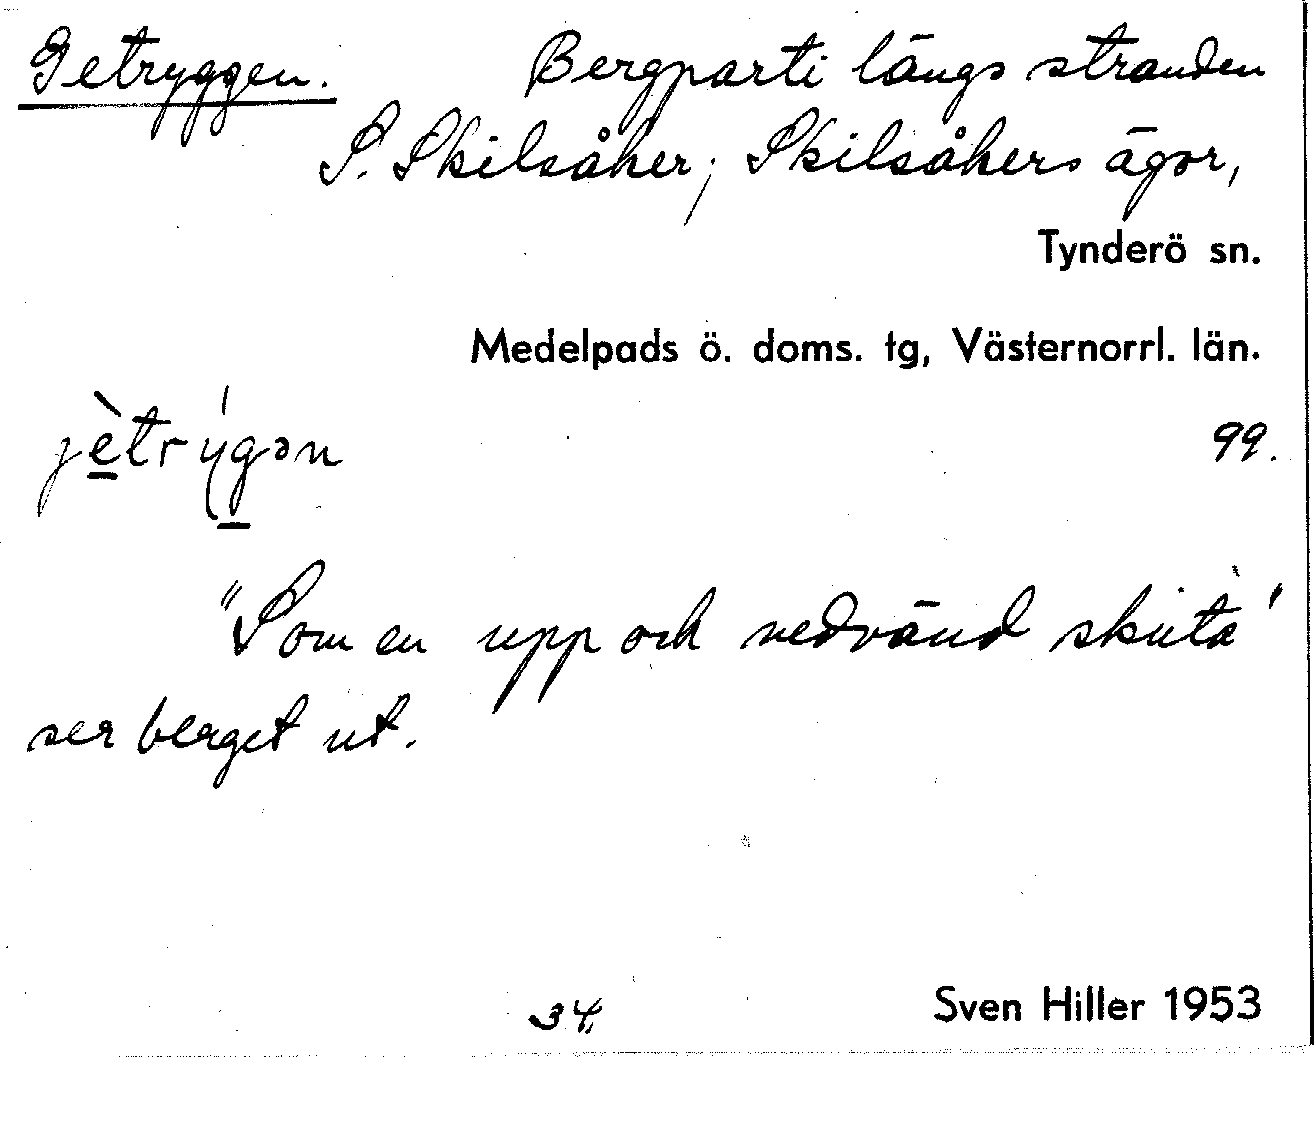 Getryggen. Bergparti längs stranden
S. Skilsåker; Skilsåkers ägor,
Tynderö sn.
Medelpads ö. doms. tg, Västernorrl. län.
jètrýgən 99.
"Som en upp och nedvänd skuta"
ser berget ut.
34, Sven Hiller 1953